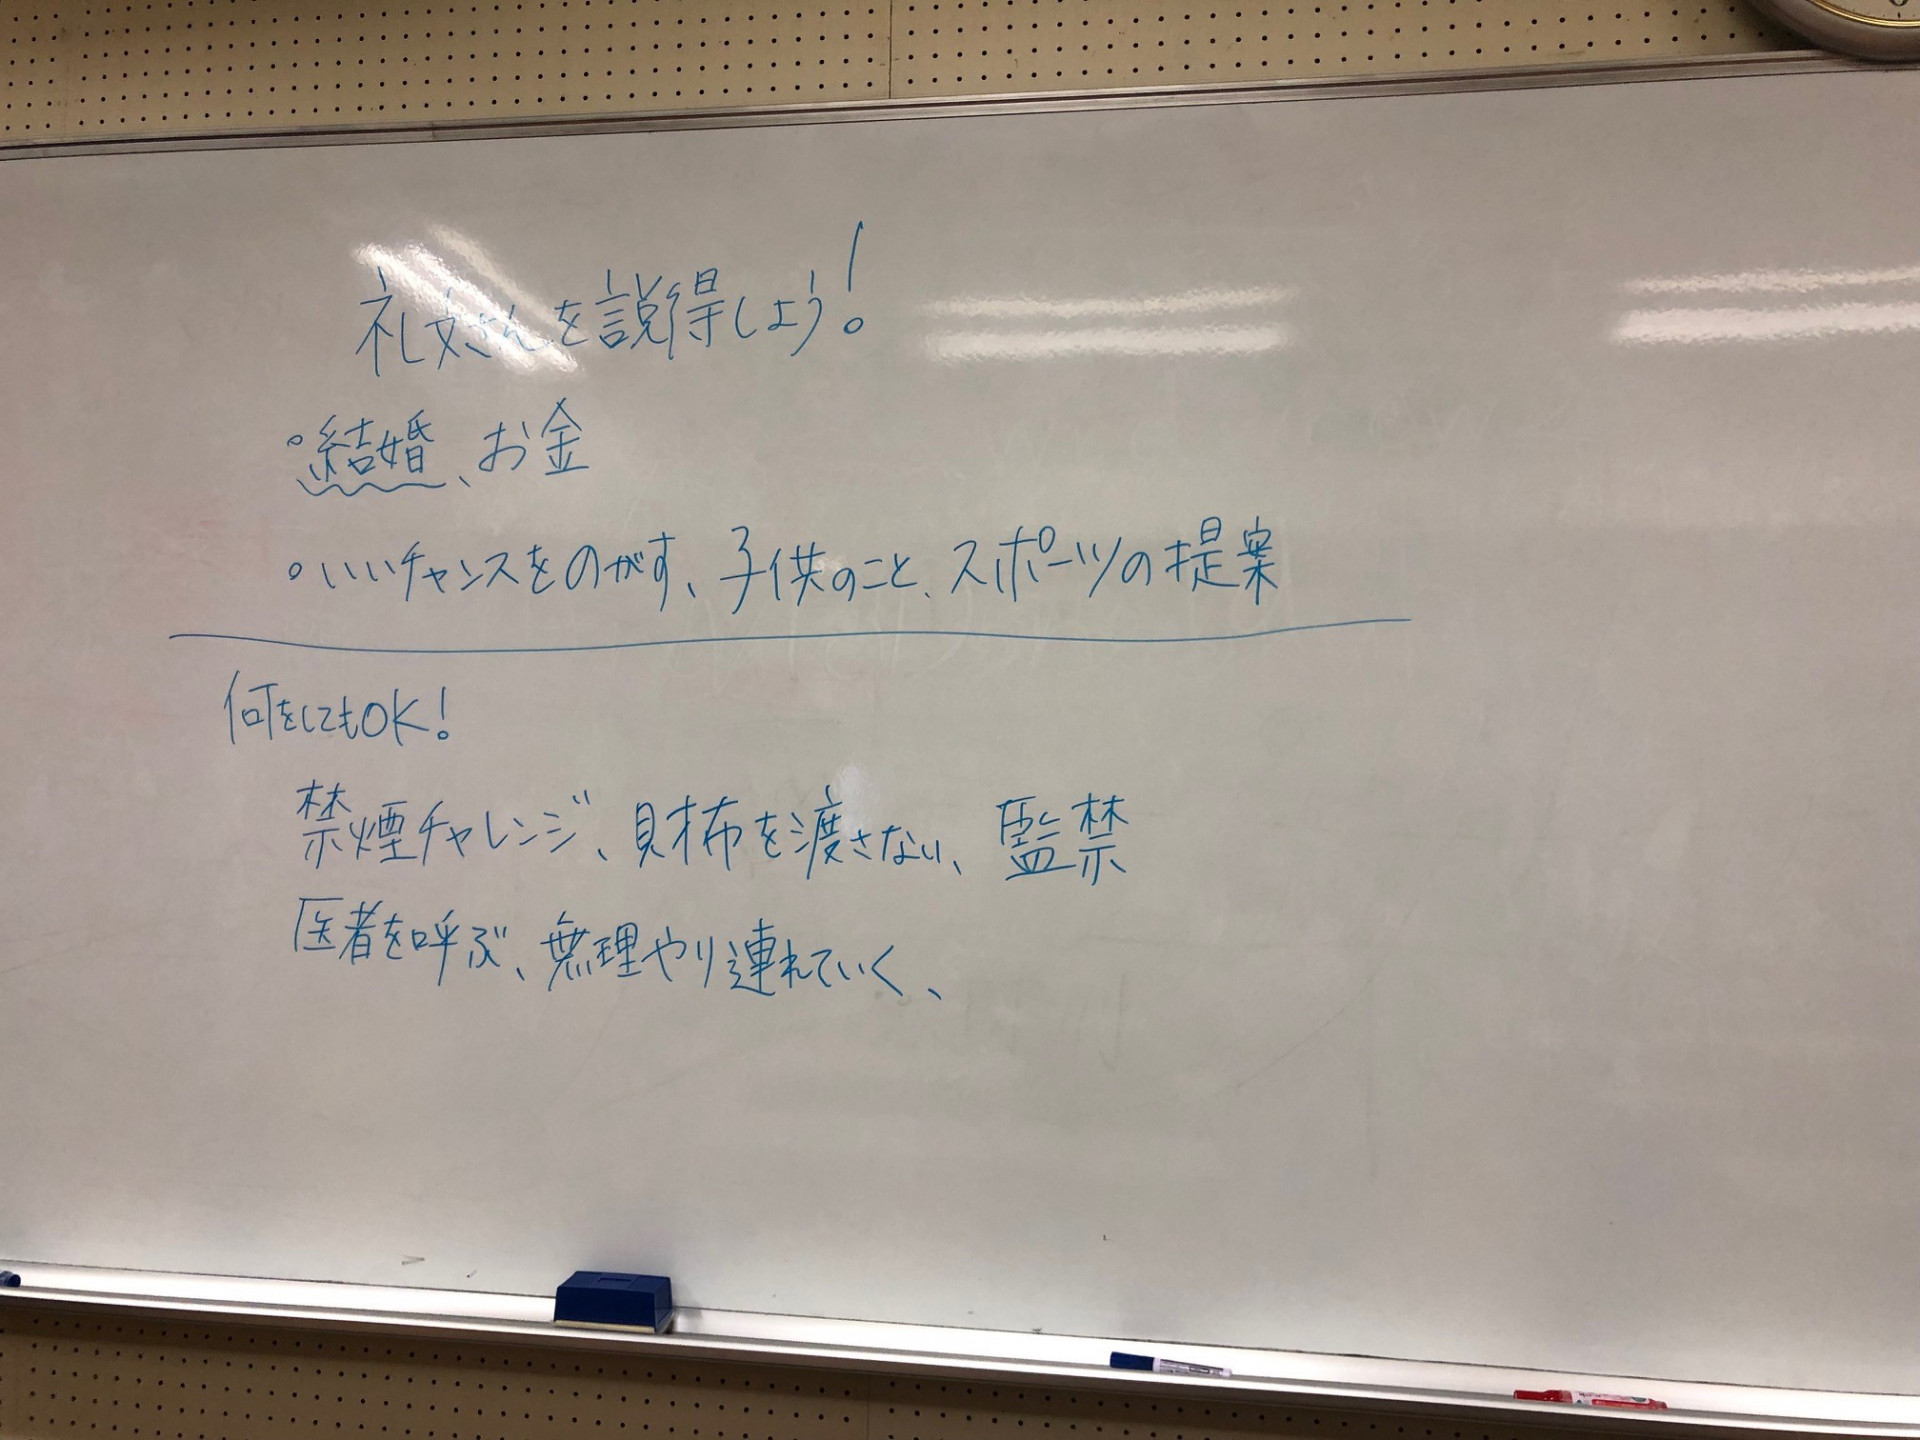 礼文さんを説得しよう!
・結婚、お金
・いいチャンスをのがす、子供のこと、スポーツの提案
何をしてもOK!
禁煙チャレンジ、財布を渡さない、監禁
医者を呼ぶ、無理やり連れていく、